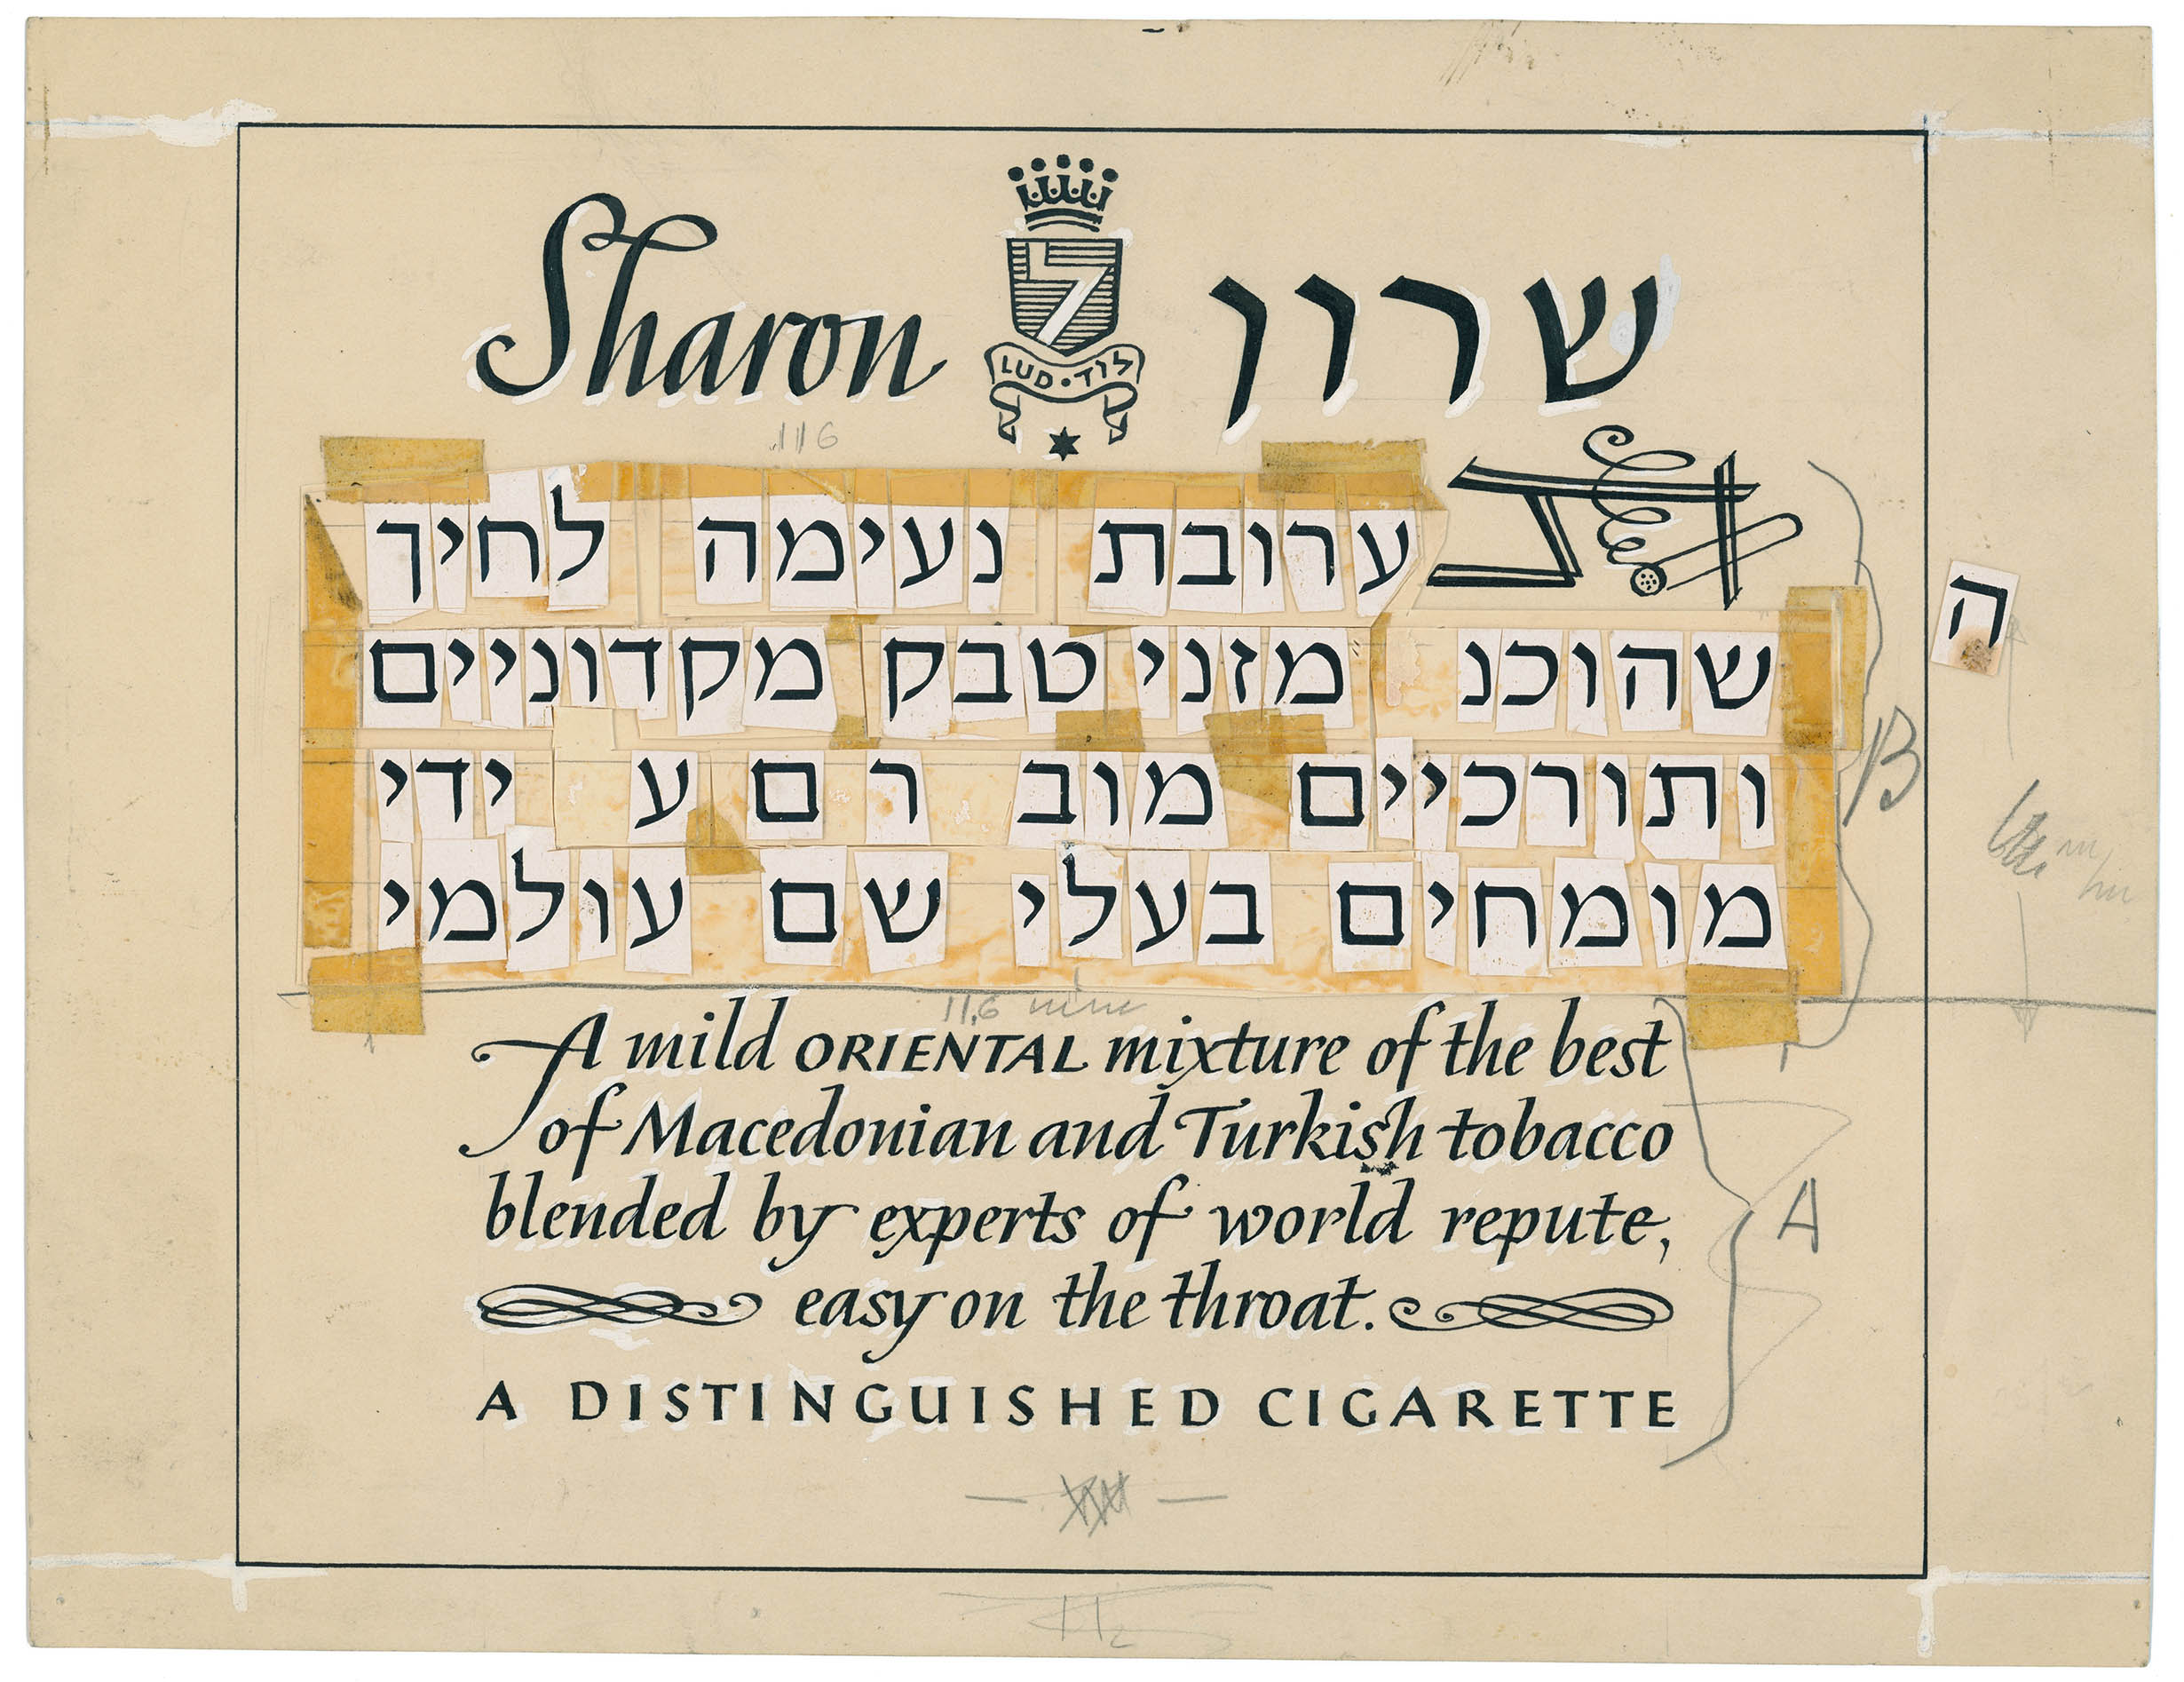 Sharon שרון
LUD • לוד
116
תערובת נעימה לחיך
שהוכנ מזני טבק מקדוניים
ה
ותורכיים מוב ר ם ע ידי
B
מומחים בעלי שם עולמי
A mild ORIENTAL mixture of the best
of Macedonian and Turkish tobacco
blended by experts of world repute,
easy on the throat.
A
A DISTINGUISHED CIGARETTE